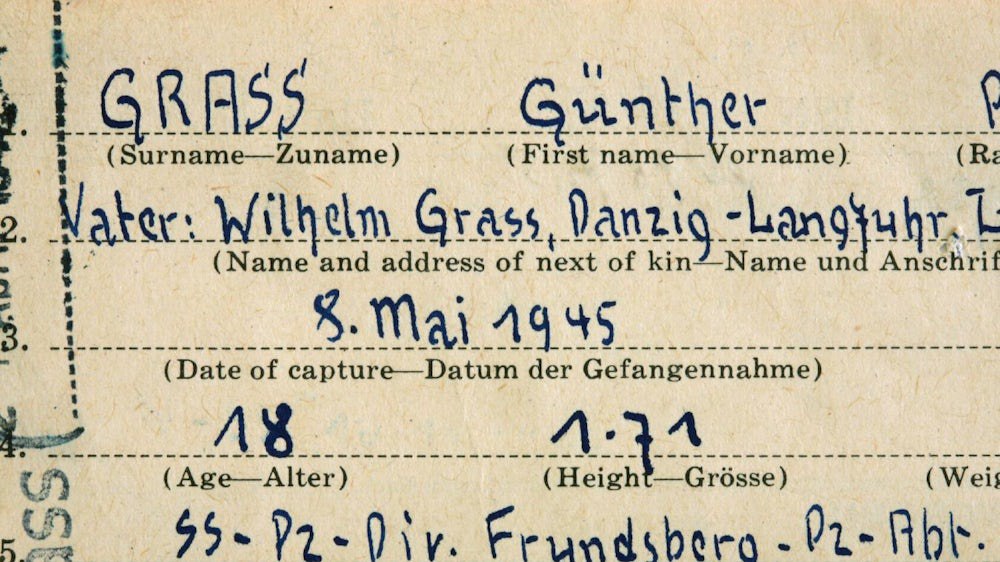 GRASS Günther
1. (Surname—Zuname) (First name—Vorname) (Ra
2. Vater: Wilhelm Grass, Danzig-Langfuhr, L
(Name and address of next of kin—Name und Anschrif
3. 8. Mai 1945
(Date of capture—Datum der Gefangennahme)
4. 18 1.71
(Age—Alter) (Height—Grösse) (Weig
5. SS-Pz-Div. Frundsberg-Pz-Abt.
SS